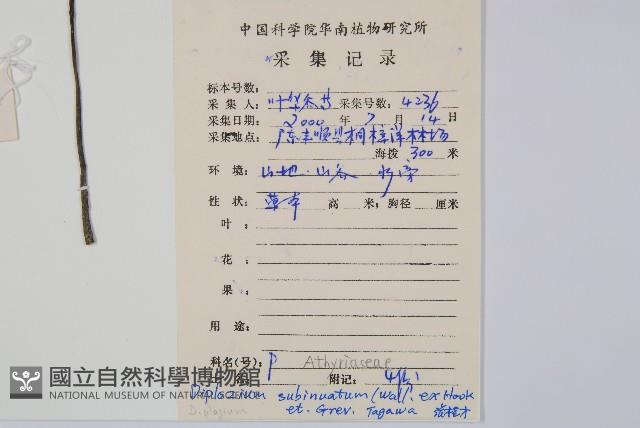 中国科学院华南植物研究所
采集记录
标本号数:
采集人: 叶华谷 采集号数: 4236
采集日期: 2000 年 7 月 14 日
采集地点: 广东丰顺县桐梓洋林场
海拨 300 米
环境: 山地·山谷
性状: 草本 高 米; 胸径 厘米
叶:
花:
果:
用途:
科名(号): P Athyriaceae
附记:
國立自然科學博物館
NATIONAL MUSEUM OF NATURAL SCIENCE
Diplazium subinuatum (Wall. ex Hook
et. Grev. Tagawa
Diplazium